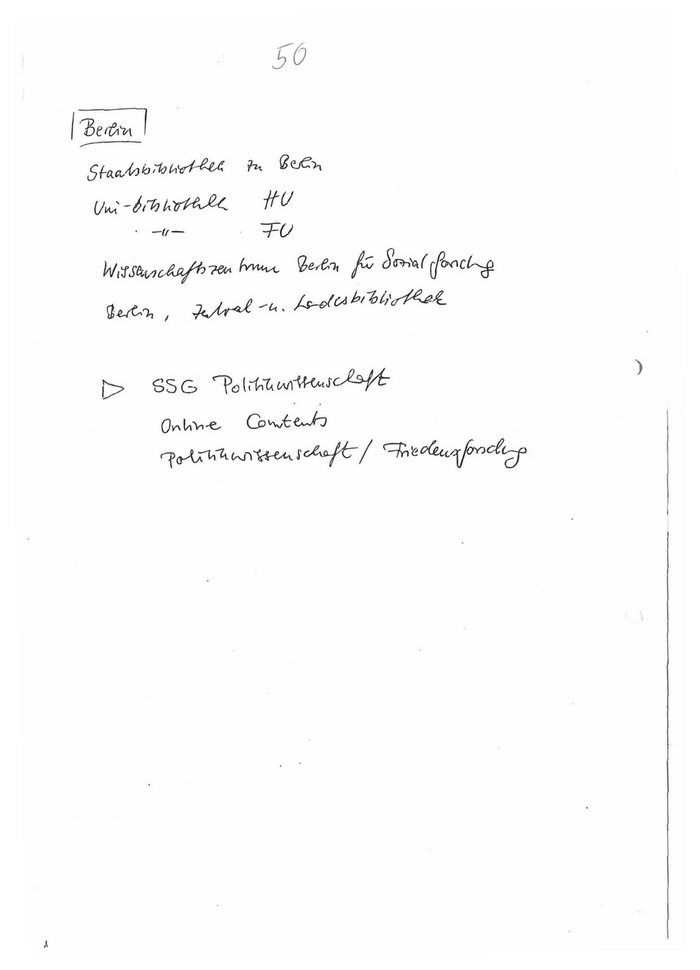 50
Berlin
Staatsbibliothek zu Berlin
Uni-bibliothek HU
-"- FU
Wissenschaftszentrum Berlin für Sozialforschg
Berlin, Zentral- u. Landesbibliothek
▷ SSG Politikwissenschaft
Online Contents
Politikwissenschaft / Friedensforschg